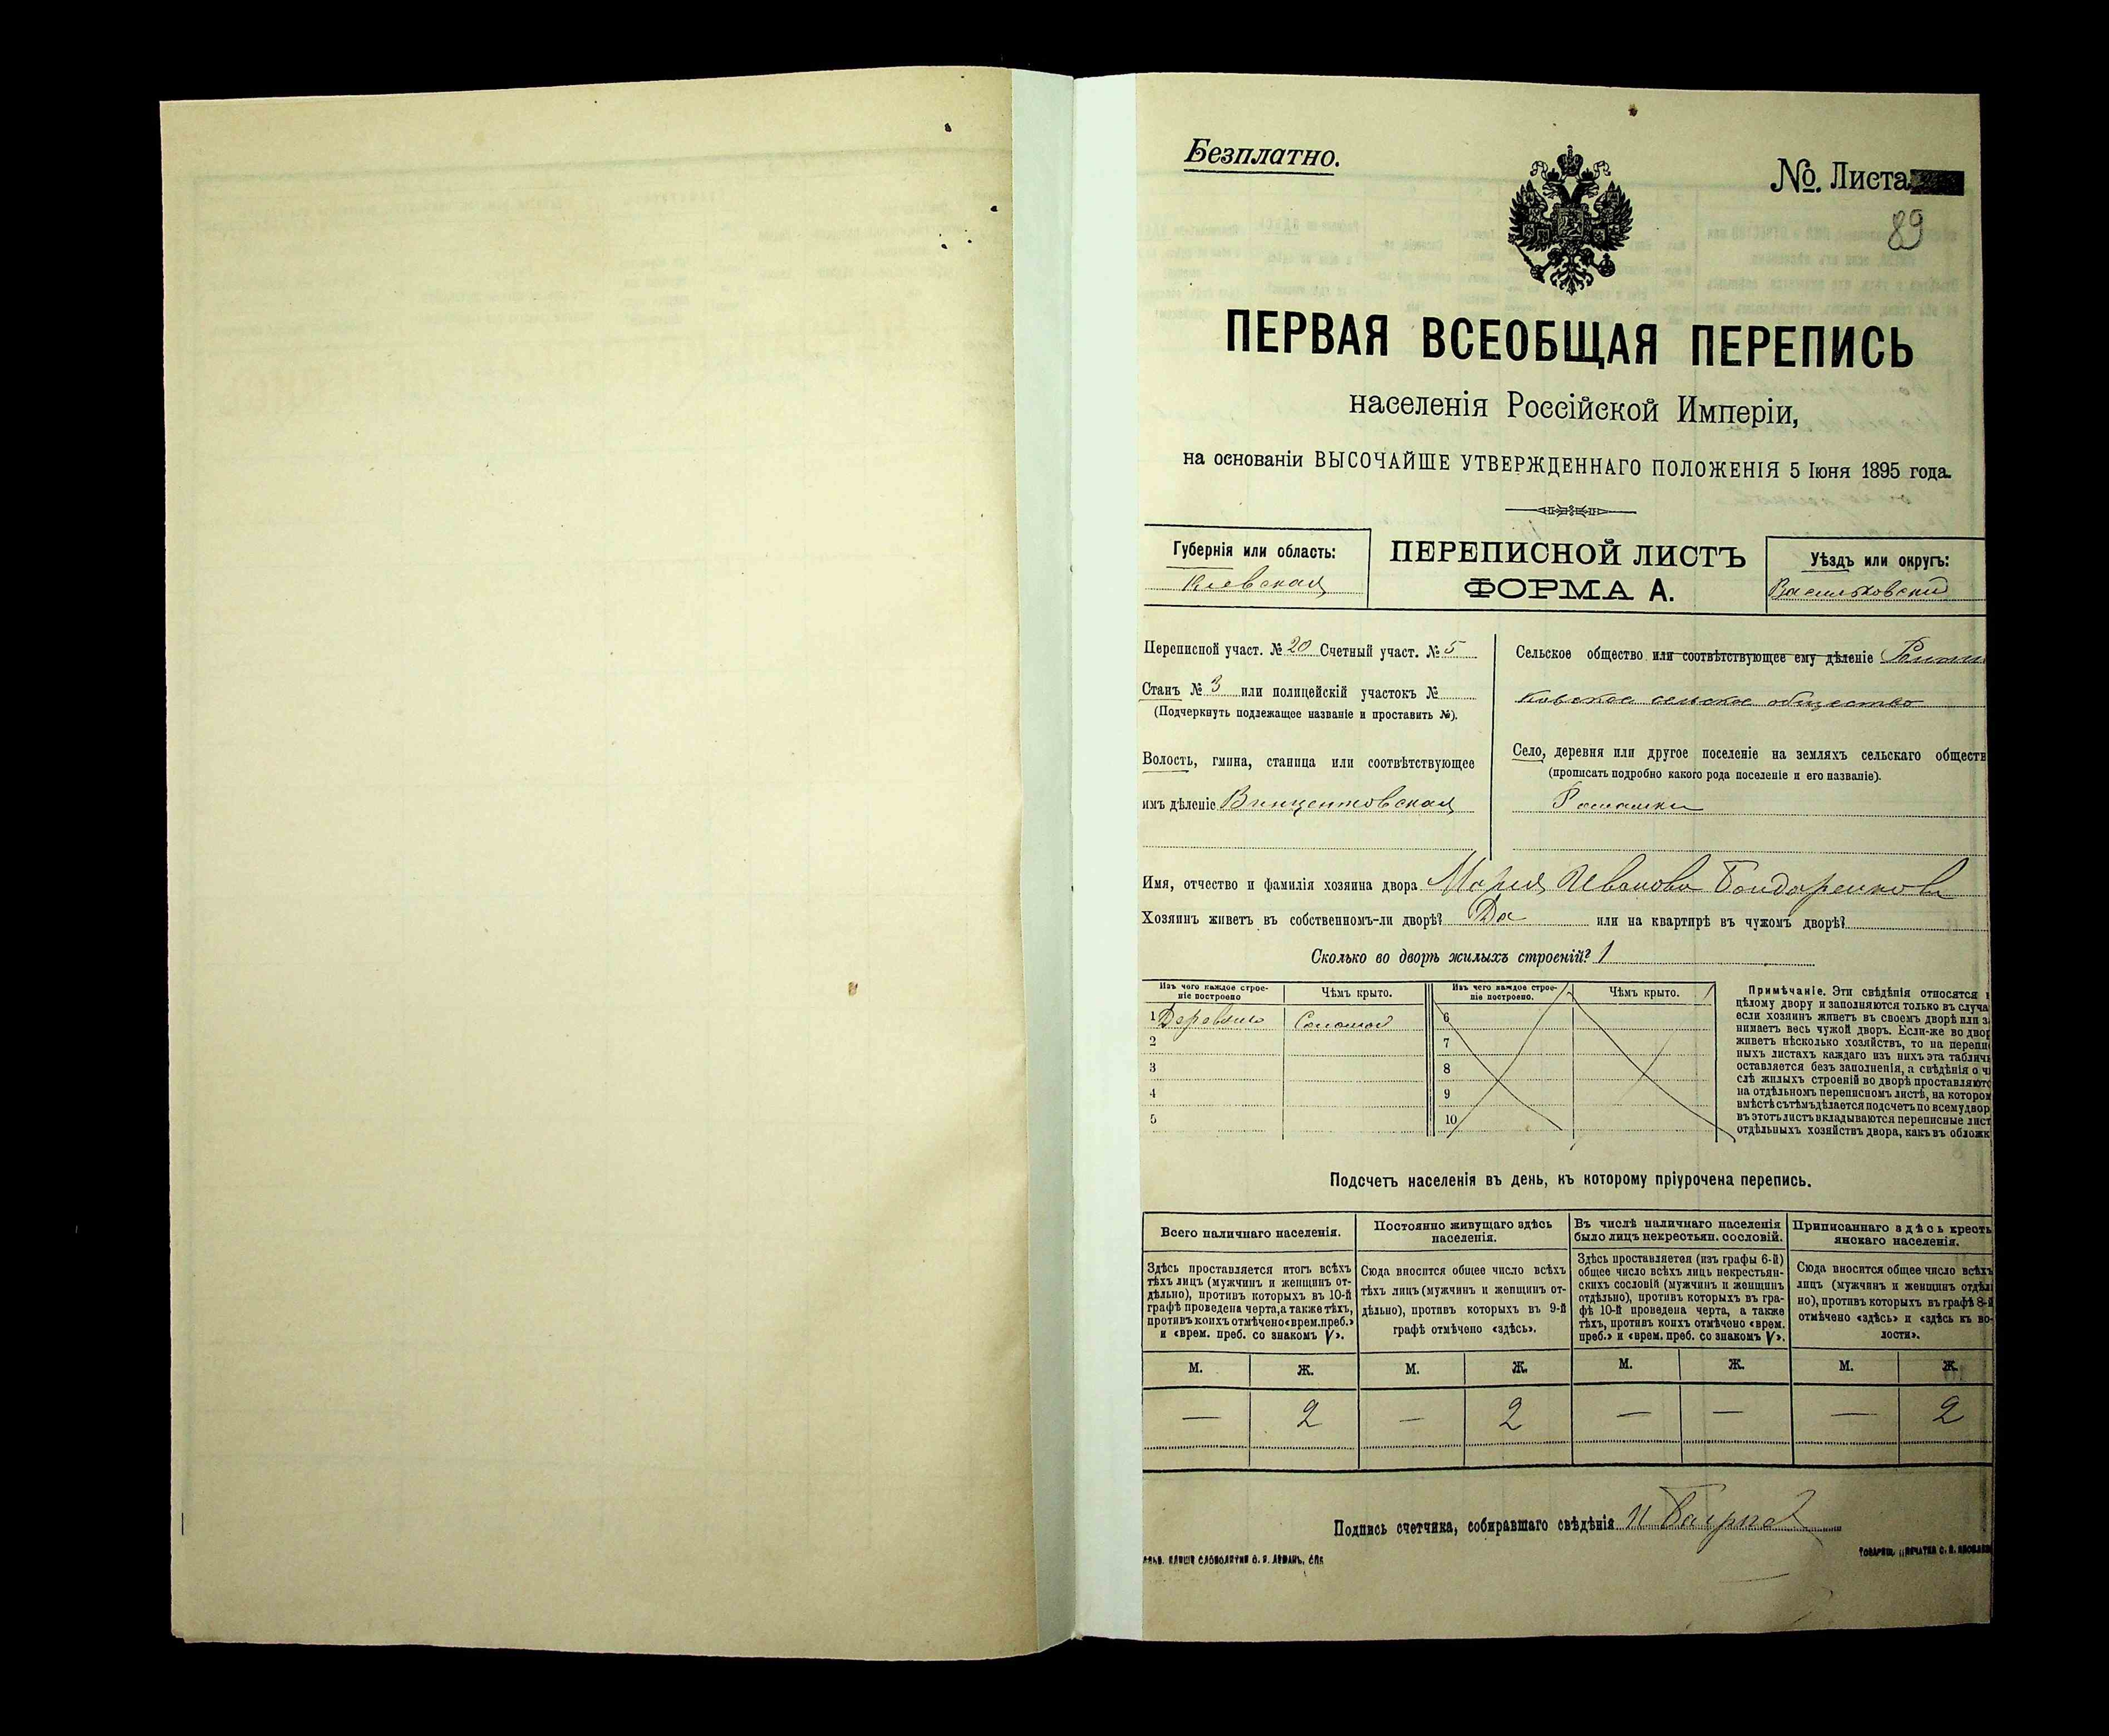 Безплатно.
№. Листа
89
ПЕРВАЯ ВСЕОБЩАЯ ПЕРЕПИСЬ
населенія Россійской Имперіи,
на основаніи ВЫСОЧАЙШЕ УТВЕРЖДЕННАГО ПОЛОЖЕНІЯ 5 Іюня 1895 года.
Губернія или область:
Кіевская
ПЕРЕПИСНОЙ ЛИСТЪ
ФОРМА А.
Уѣздъ или округъ:
Васильковский
Переписной участ. № 20 Счетный участ. № 5
Станъ № 3 или полицейскій участокъ №
(Подчеркнуть подлежащее названіе и проставить №).
Волость, гмина, станица или соотвѣтствующее
имъ дѣленіе Винцентовская
Сельское общество или соотвѣтствующее ему дѣленіе
ковское сельское общество
Село, деревня или другое поселеніе на земляхъ сельскаго обществ
(прописать подробно какого рода поселеніе и его названіе).
Ромашки
Имя, отчество и фамилія хозяина двора Марія Иванова Бондаренкова
Хозяинъ живетъ въ собственномъ-ли дворѣ? Да или на квартирѣ въ чужомъ дворѣ?
Сколько во дворѣ жилыхъ строеній? 1
Изъ чего каждое строе-
ніе построено
Чѣмъ крыто.
1 Деревянно Соломой
2
3
4
5
Изъ чего каждое строе-
ніе построено.
Чѣмъ крыто.
6
7
8
9
10
Примѣчаніе. Эти свѣдѣнія относятся
цѣлому двору и заполняются только въ случа
если хозяинъ живетъ въ своемъ дворѣ или з
нимаетъ весь чужой дворъ. Если-же во двор
живетъ нѣсколько хозяйствъ, то на перепи
ныхъ листахъ каждаго изъ нихъ эта таблич
оставляется безъ заполненія, а свѣдѣнія о чи
слѣ жилыхъ строеній во дворѣ проставляютс
на отдѣльномъ переписномъ листѣ, на котором
вмѣстѣ съ тѣмъ дѣлается подсчетъ по всему двор
въ этотъ листъ вкладываются переписные лист
отдѣльныхъ хозяйствъ двора, какъ въ обложк
Подсчетъ населенія въ день, къ которому пріурочена перепись.
Всего наличнаго населенія.
Здѣсь проставляется итогъ всѣхъ
тѣхъ лицъ (мужчинъ и женщинъ от-
дѣльно), противъ которыхъ въ 10-й
графѣ проведена черта, а также тѣхъ,
противъ коихъ отмѣчено «врем. преб.»
и «врем. преб. со знакомъ V».
Постоянно живущаго здѣсь
населенія.
Сюда вносится общее число всѣхъ
тѣхъ лицъ (мужчинъ и женщинъ от-
дѣльно), противъ которыхъ въ 9-й
графѣ отмѣчено «здѣсь».
Въ числѣ наличнаго населенія
было лицъ некрестьян. сословій.
Здѣсь проставляется (изъ графы 6-й)
общее число всѣхъ лицъ некрестьян-
скихъ сословій (мужчинъ и женщинъ
отдѣльно), противъ которыхъ въ гра-
фѣ 10-й проведена черта, а также
тѣхъ, противъ коихъ отмѣчено «врем.
преб.» и «врем. преб. со знакомъ V».
Приписаннаго здѣсь кресть
янскаго населенія.
Сюда вносится общее число всѣхъ
лицъ (мужчинъ и женщинъ отдѣл
но), противъ которыхъ въ графѣ 8-й
отмѣчено «здѣсь» и «здѣсь въ во-
лости».
М. Ж. М. Ж. М. Ж. М. Ж.
— 2 — 2 — — — 2
Подпись счетчика, собиравшаго свѣдѣнія